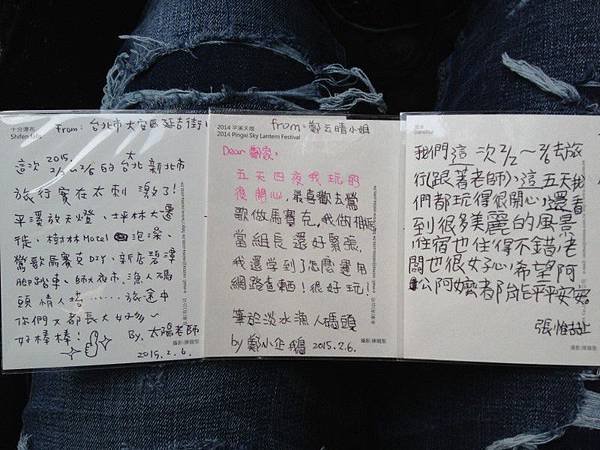 十分瀑布
Shifen falls
From: 台北市大安區延吉街
這次2015.
2/2~2/6的台北新北市
旅行實在太刺激了!
平溪放天燈、坪林大遷
徙、樹林Motel泡澡、
鶯歌馬賽克DIY、新店碧潭
腳踏車、師大夜市、漁人碼
頭情人塔……旅途中
你們又都長大好多~
好棒棒!
By. 太陽老師
2015.2.6.
攝影:陳穎聖
2014 平溪天燈
2014 Pingxi Sky Lantern Festival
from: 鄭云晴小姐
Dear 鄭家:
五天四夜我玩的
很開心,最喜歡去鶯
歌做馬賽克,我做相框
當組長還好緊張,
我還學到了怎麼運用
網路查東西!很好玩!
筆於淡水漁人碼頭
by 鄭小企鵝 2015.2.6.
攝影:陳穎聖
我們這一次2/2~2/6去旅
行(跟著老師),這五天我
們都玩得很開心,還看
到很多美麗的風景
住宿也住得不錯,老
闆也很好心,希望阿
公阿嬤都能平平安安。
攝影:陳穎聖